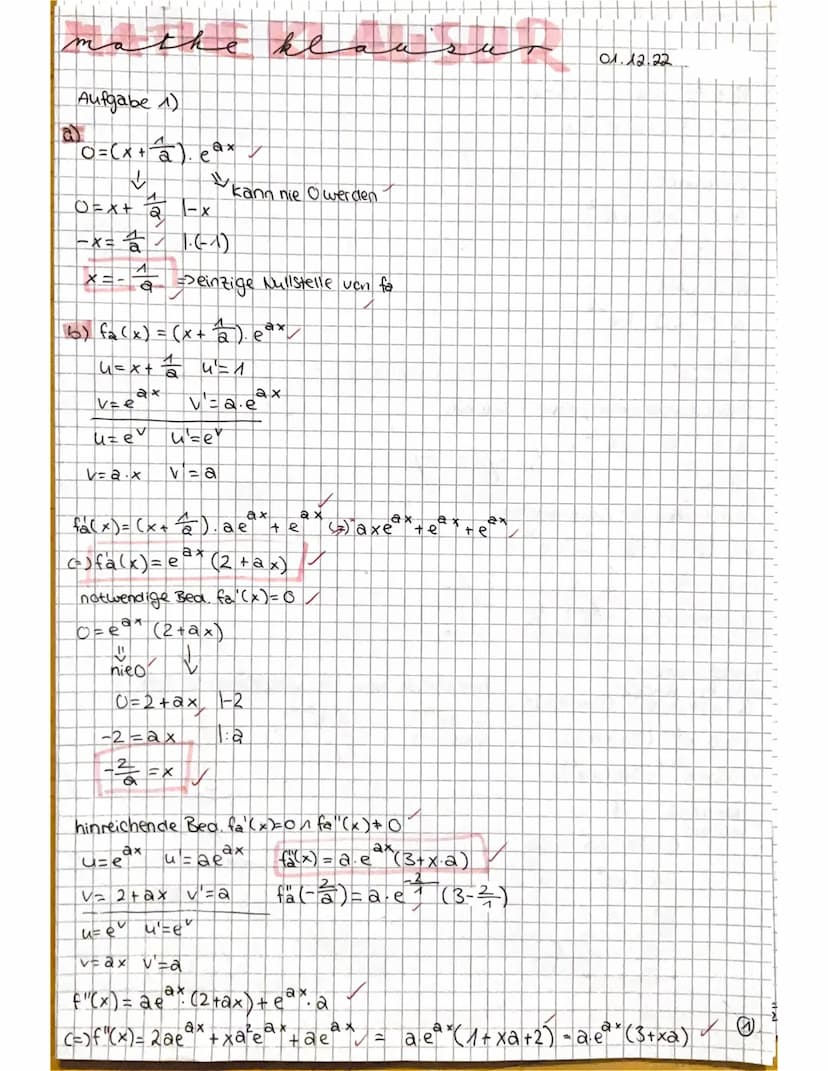 mathe klausur
01.12.22
Aufgabe 1)
a)
0=(x+1/a)·e^ax
↓ ⇓ kann nie 0 werden
0=x+1/a |-x
-x=1/a |·(-1)
x=-1/a ⇒ einzige Nullstelle von fa
b) fa(x)=(x+1/a)·e^ax
u=x+1/a u'=1
v=e^ax v'=a·e^ax
u=e^v u'=e^v
v=a·x v'=a
fa'(x)=(x+1/a)·ae^ax+e^ax (=) axe^ax+e^ax+e^ax
(=) fa'(x)=e^ax(2+ax)
notwendige Bed. fa'(x)=0
0=e^ax(2+ax)
nie 0 ↓
0=2+ax |-2
-2=ax |:a
-2/a=x
hinreichende Bed. fa'(x)=0 ∧ fa''(x)≠0
u=e^ax u'=ae^ax fa''(x)=a·e^ax(3+x·a)
v=2+ax v'=a fa''(-2/a)=a·e^(-2/1)(3-2/1)
u=e^v u'=e^v
v=ax v'=a
f''(x)=ae^ax·(2+ax)+e^ax·a
(=) f''(x)=2ae^ax+xa²e^ax+ae^ax = a·e^ax(1+xa+2)=a·e^ax(3+xa)
①